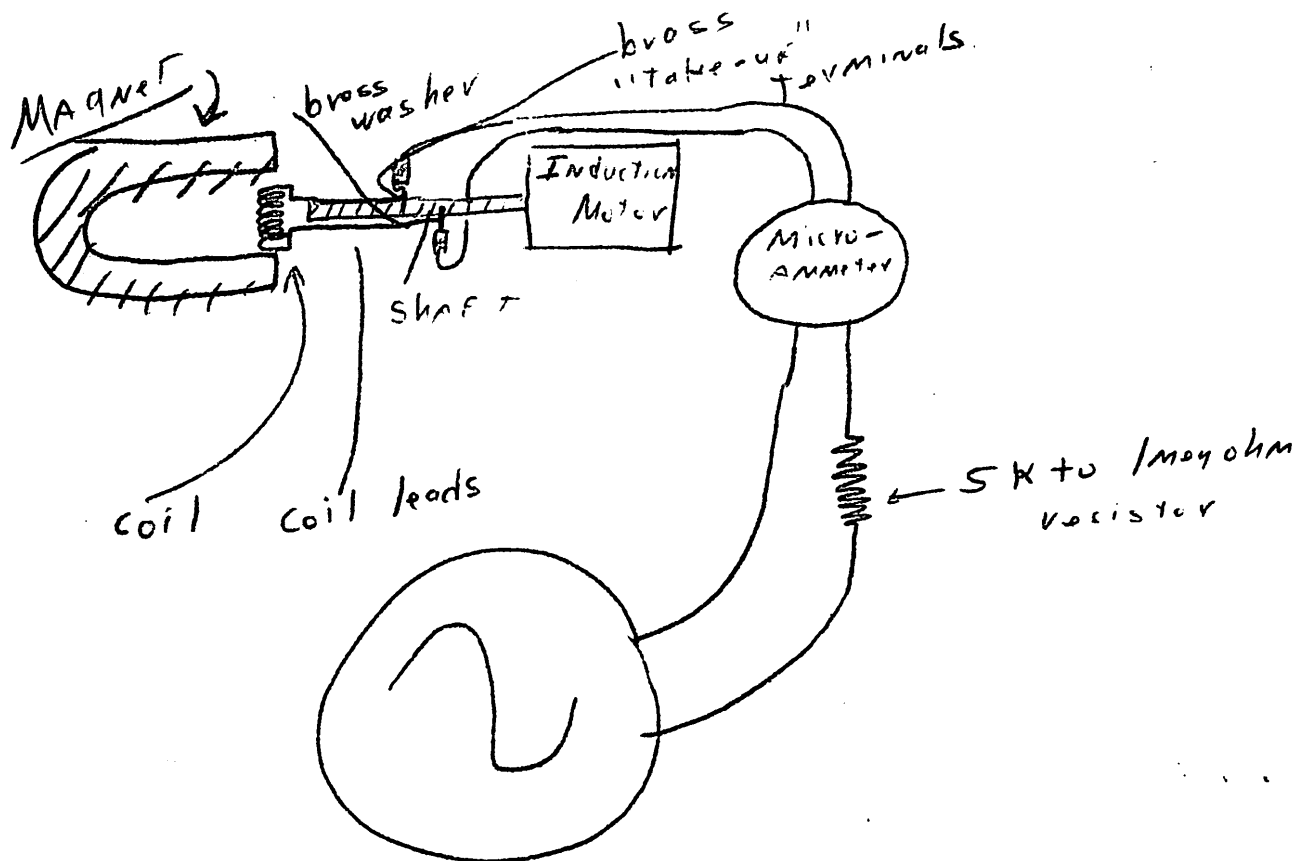 MAGNET
brass
washer
brass
"take-up"
terminals
INDUCTION
Motor
Micro-
AMMeter
SHAFT
coil
coil leads
5K to 1megohm
resistor